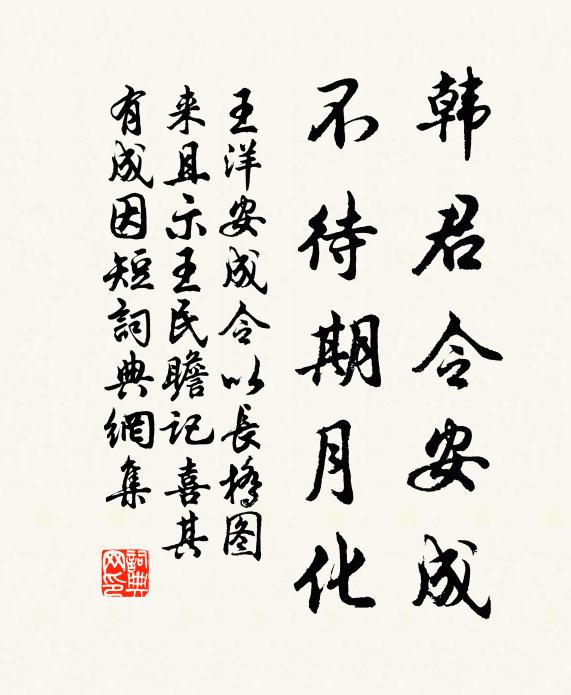 韩君令安成
不待期月化
王洋安成令以長橋图
来且示王民瞻记喜其
有成因短詞典網集
詞典
网印